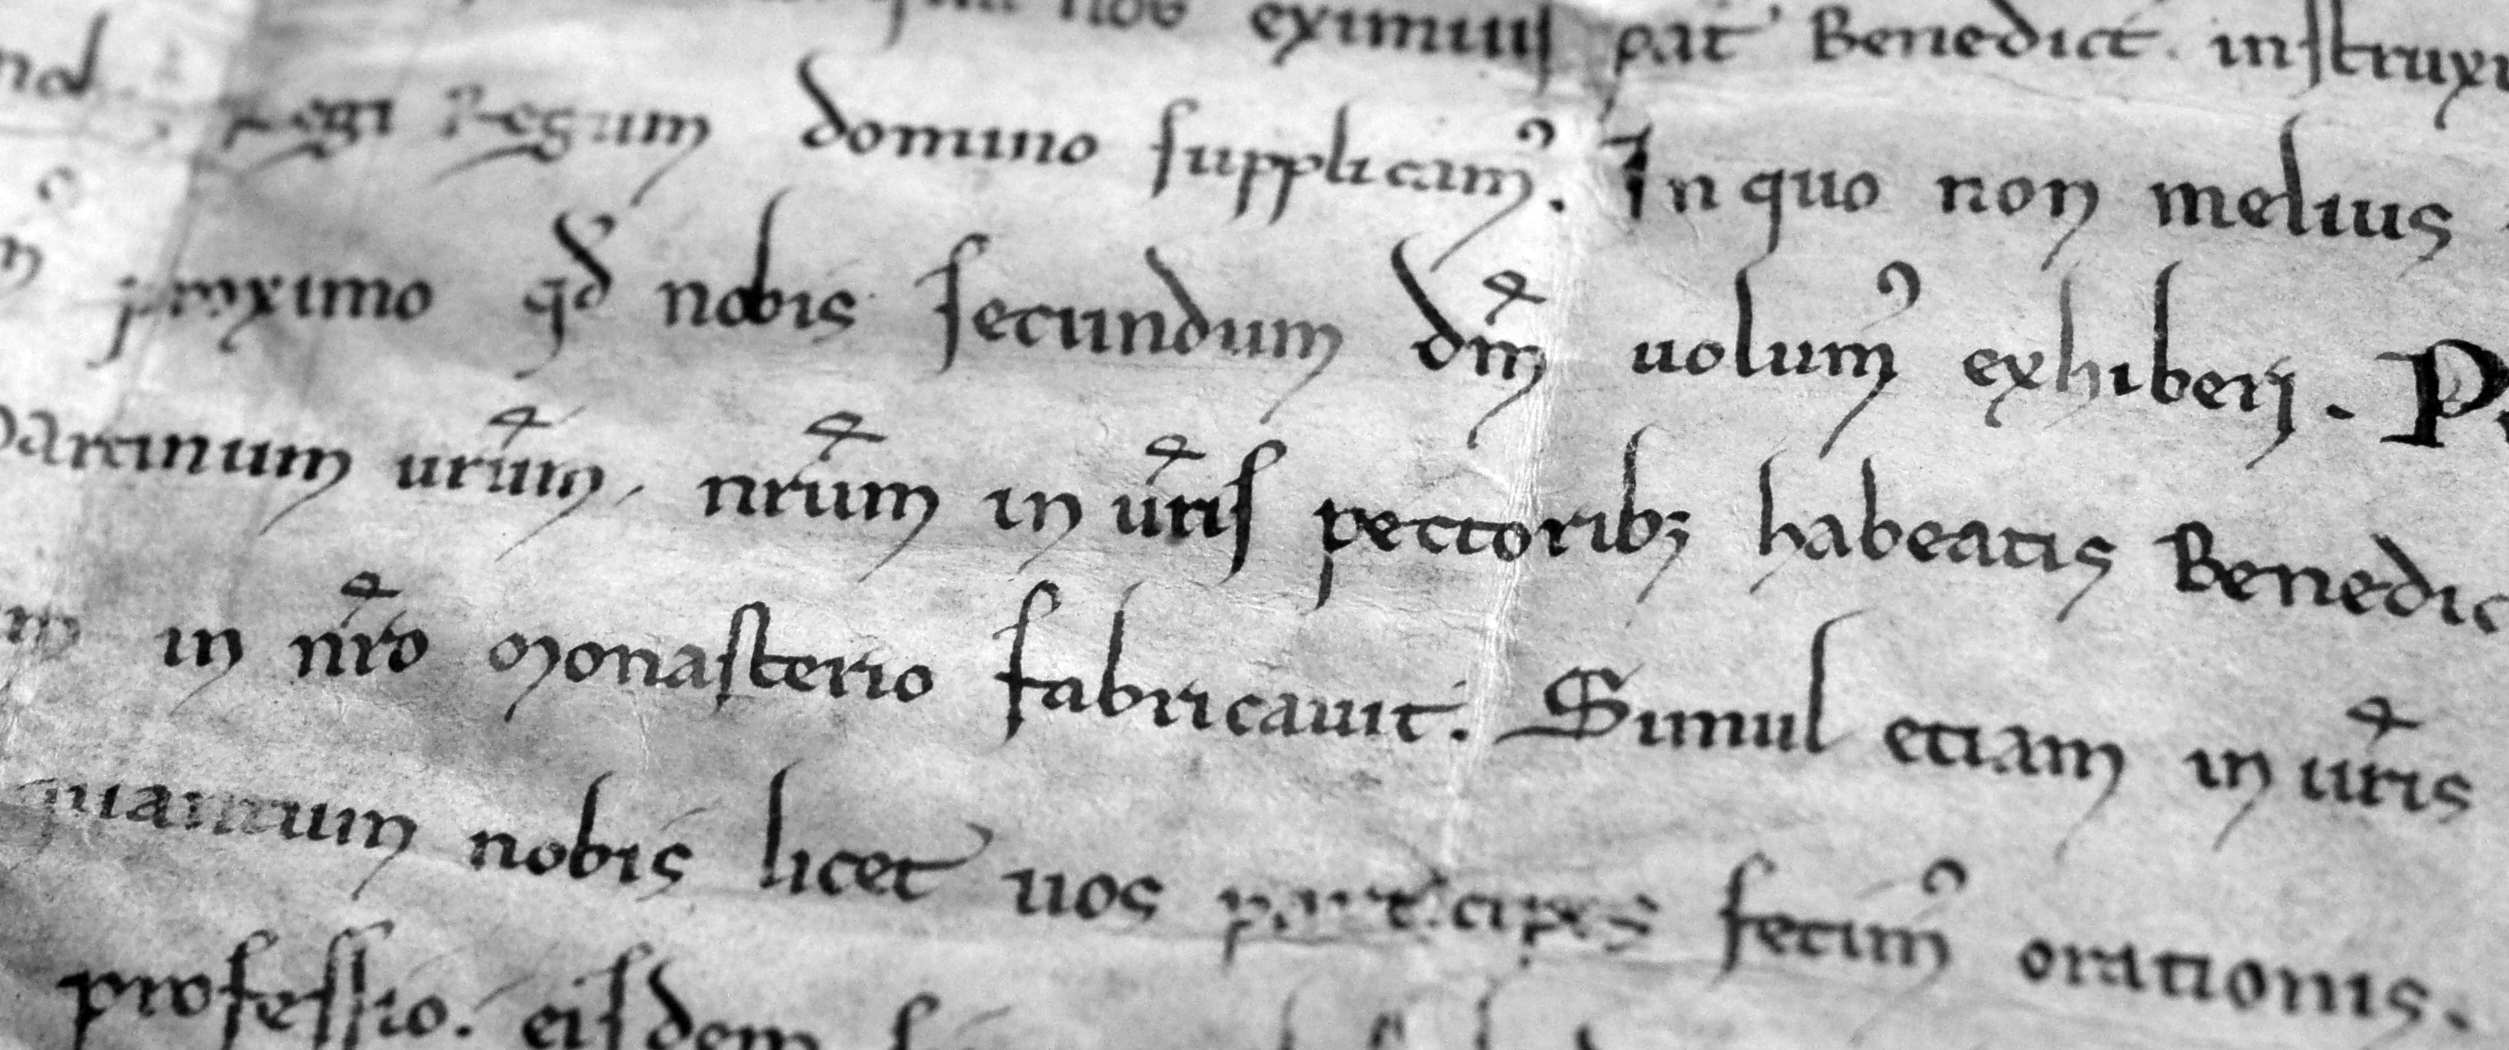 nos eximius pat' Benedict. instruxi
Regi Regum domino supplicam⁹. In quo non melius
proximo qd nobis secundum dm̄ uolum⁹ exhiberj. P
parcinum ur̄um, nr̄um in ur̄is pectorib; habeatis Benedic
in nr̄o Monasterio fabricauit. Simul etiam in ur̄is
nobis licet uos participes fecim⁹ orationis.
professio. eisdem